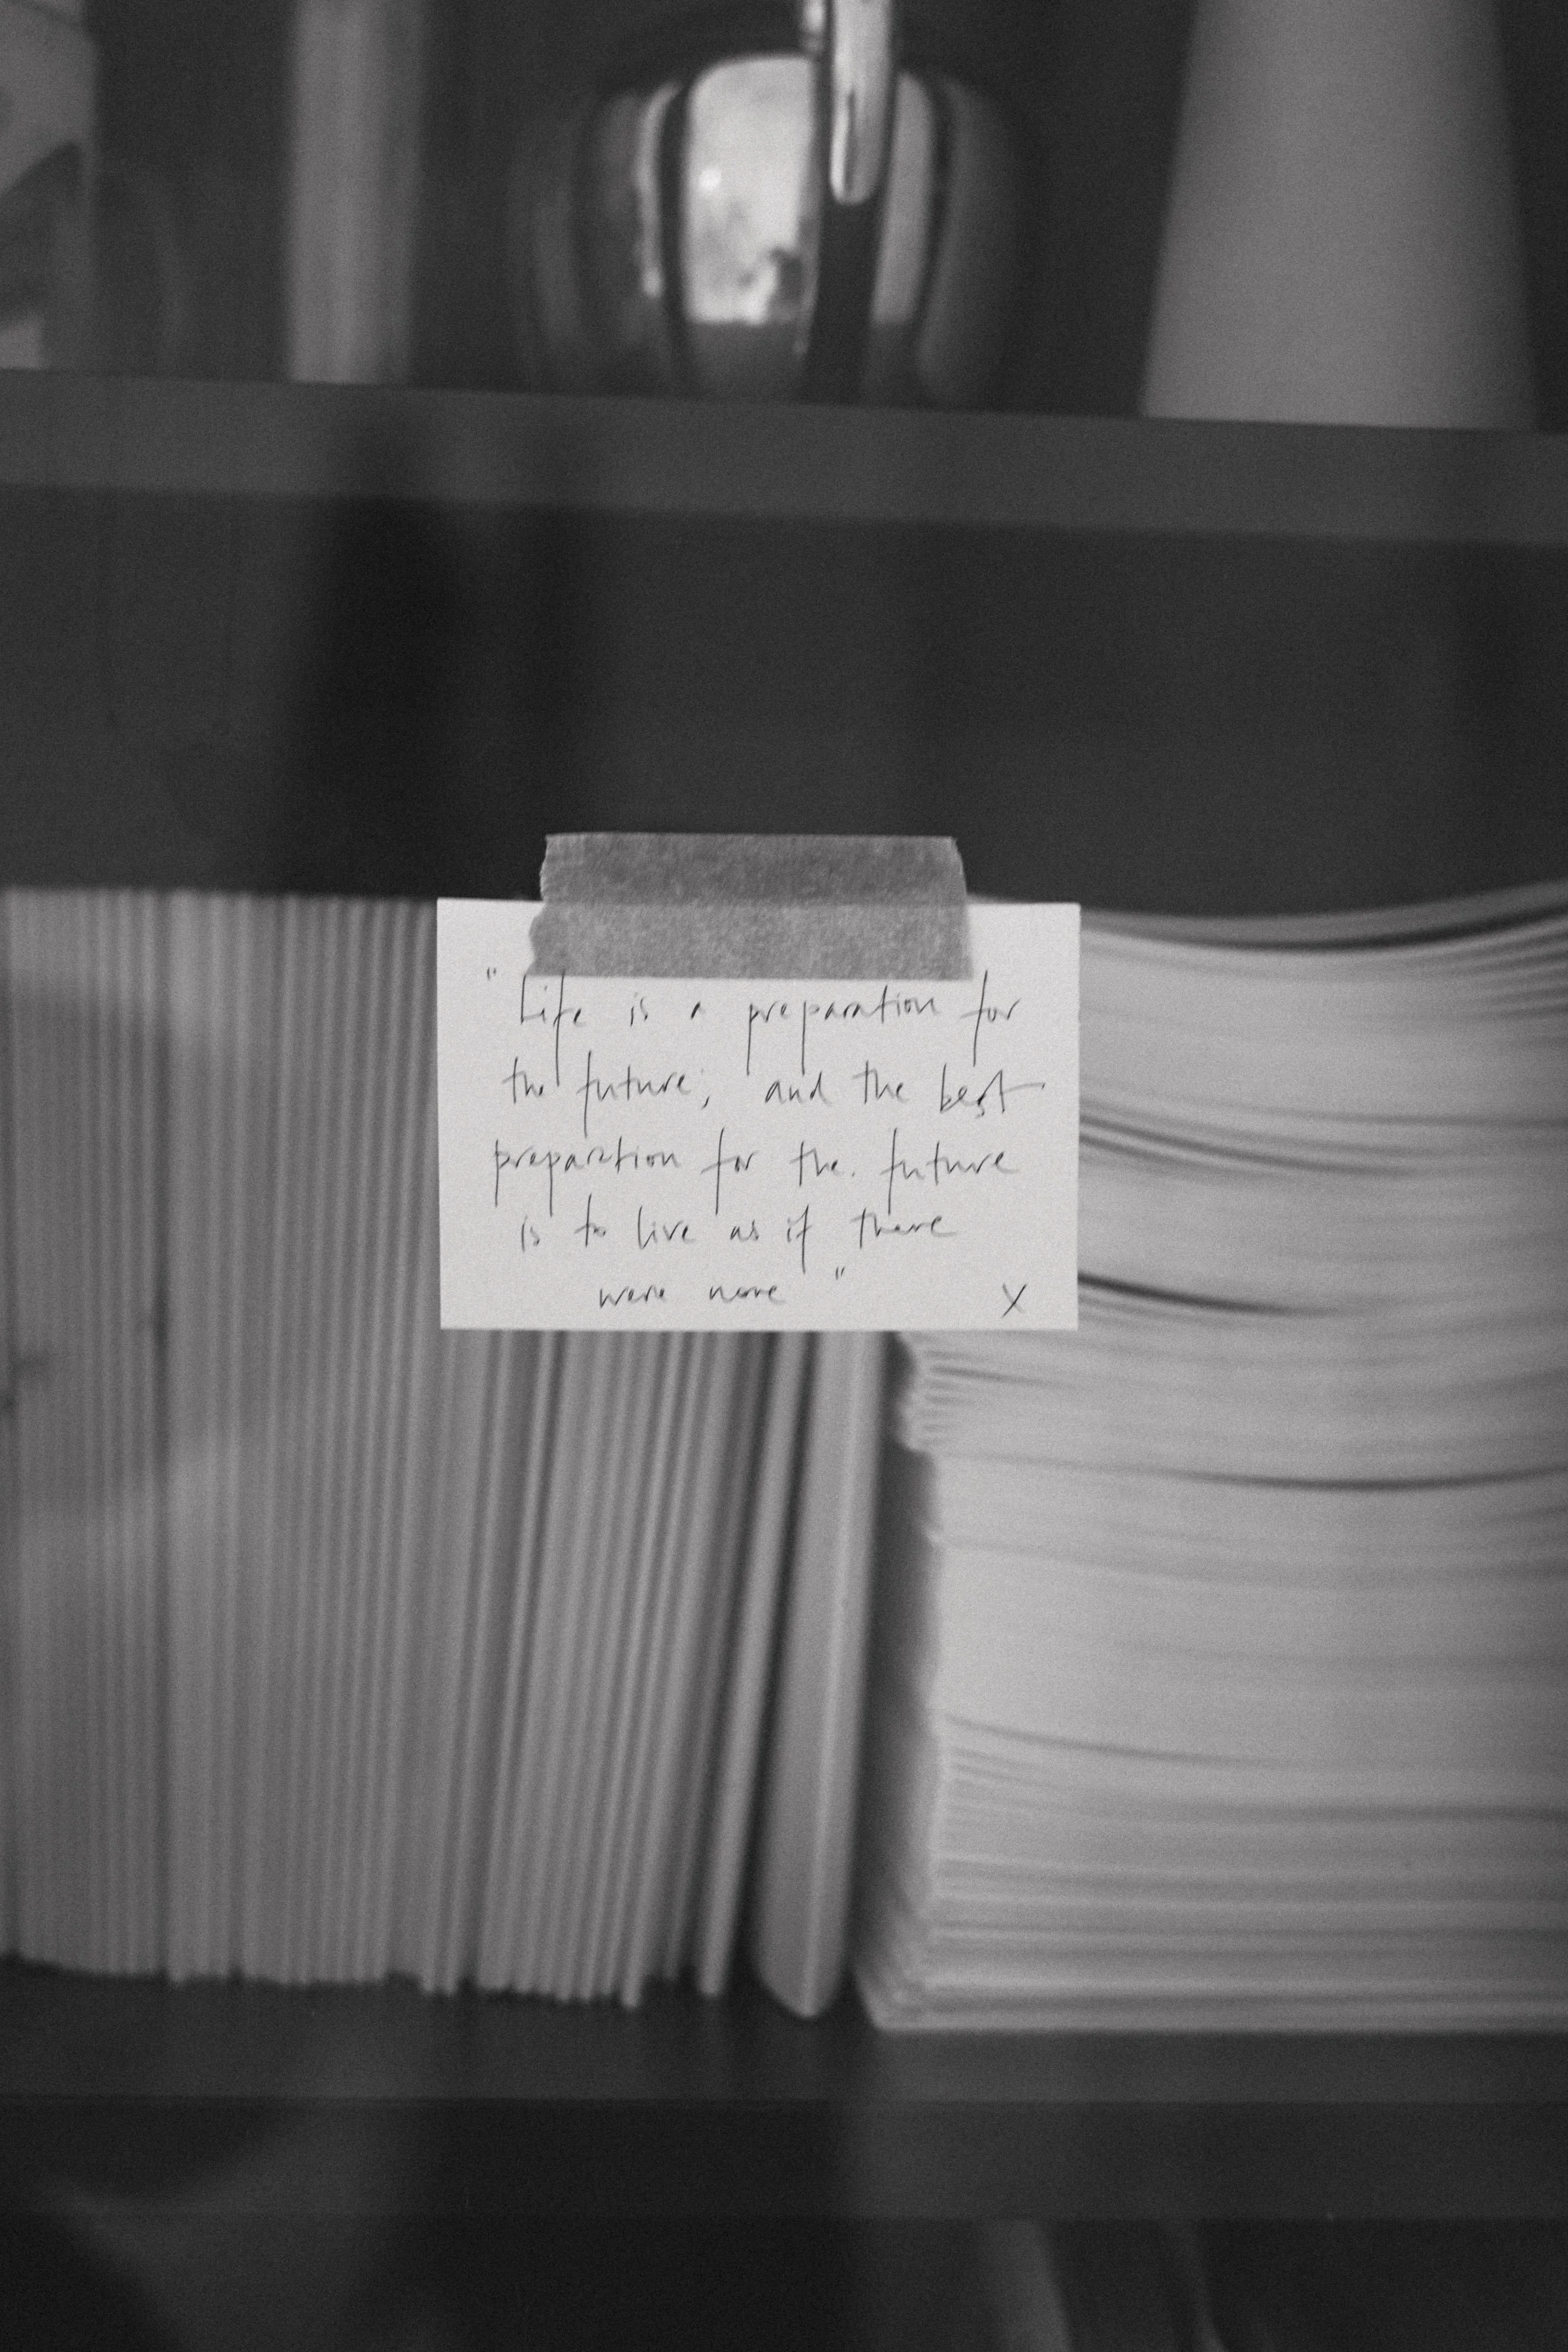 " Life is a preparation for
the future; and the best
preparation for the. future
is to live as if there
were none "
X